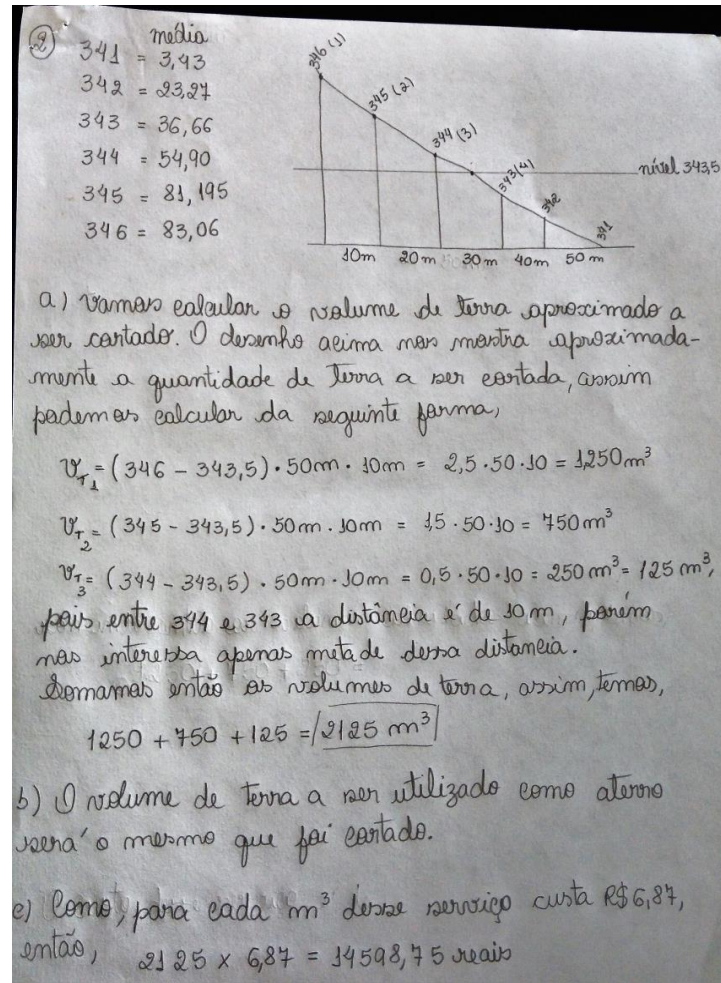 2)
média
341 = 3,43
342 = 23,27
343 = 36,66
344 = 54,90
345 = 81,195
346 = 83,06
346 (1)
345 (2)
344 (3)
343 (4)
342
341
nível 343,5
10m 20m 30m 40m 50m
a) Vamos calcular o volume de terra aproximado a
ser cortado. O desenho acima nos mostra aproximada-
mente a quantidade de terra a ser cortada, assim
podemos calcular da seguinte forma,
V_T1 = (346 - 343,5) · 50m · 10m = 2,5 · 50 · 10 = 1250 m³
V_T2 = (345 - 343,5) · 50m · 10m = 1,5 · 50 · 10 = 750 m³
V_T3 = (344 - 343,5) · 50m · 10m = 0,5 · 50 · 10 = 250 m³ = 125 m³,
pois entre 344 e 343 a distância é de 10 m, porém
nos interessa apenas metade dessa distancia.
Somamos então os volumes de terra, assim, temos,
1250 + 750 + 125 = 2125 m³
b) O volume de terra a ser utilizado como aterro
será o mesmo que foi cortado.
c) Como, para cada m³ desse serviço custa R$ 6,87,
então, 2125 x 6,87 = 14598,75 reais